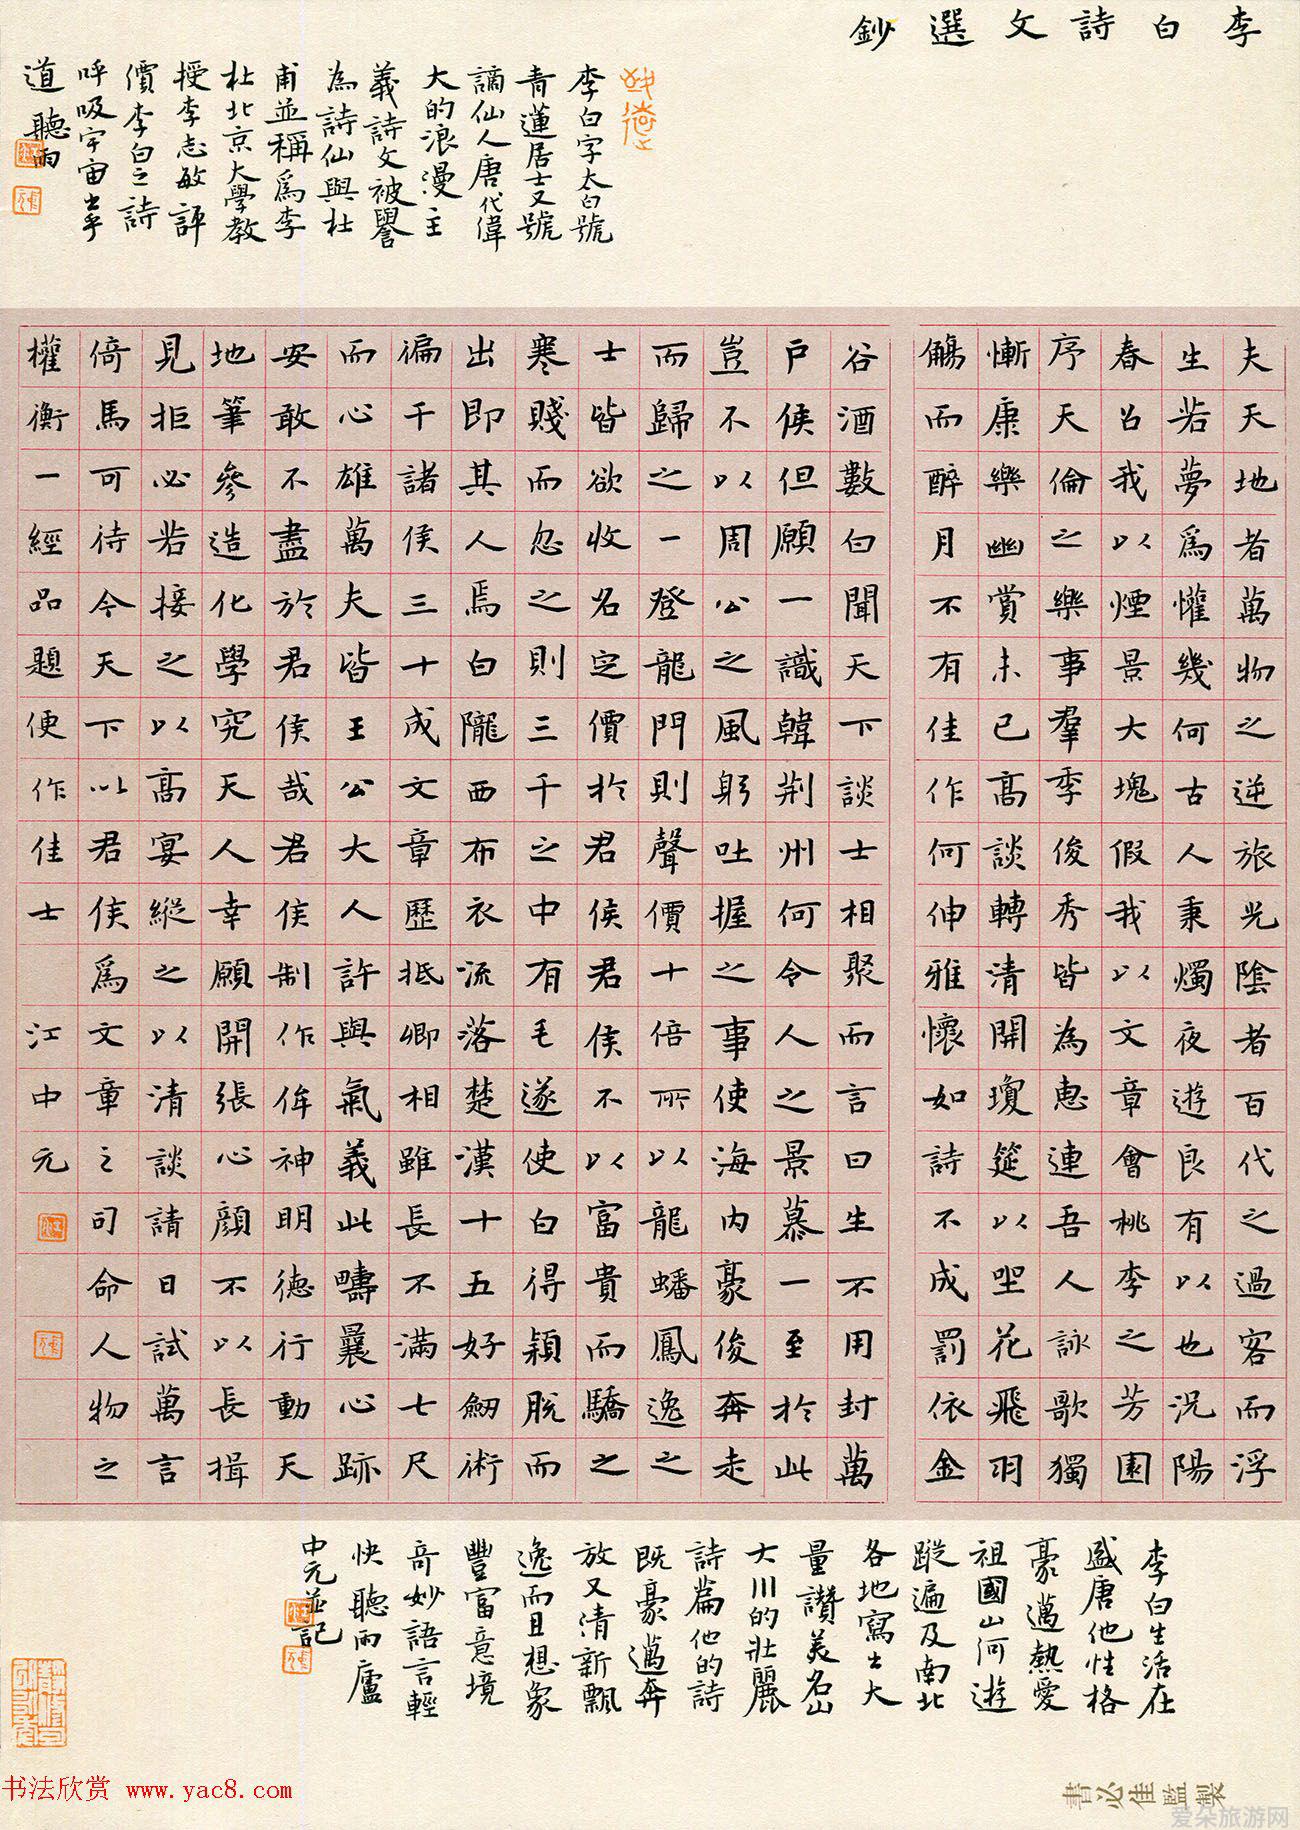 李白詩文選鈔
李白字太白號
青蓮居士又號
謫仙人唐代偉
大的浪漫主
義詩文被譽
為詩仙與杜
甫並稱爲李
杜北京大學教
授李志敏評
價李白之詩
呼吸宇宙出乎
道 聽雨
夫天地者萬物之逆旅光陰者百代之過客而浮
生若夢爲懽幾何古人秉燭夜遊良有以也況陽
春召我以煙景大塊假我以文章會桃李之芳園
序天倫之樂事羣季俊秀皆為惠連吾人詠歌獨
慚康樂幽賞未已高談轉清開瓊筵以坐花飛羽
觴而醉月不有佳作何伸雅懷如詩不成罰依金
谷酒數白聞天下談士相聚而言曰生不用封萬
戶侯但願一識韓荊州何令人之景慕一至於此
豈不以周公之風躬吐握之事使海內豪俊奔走
而歸之一登龍門則聲價十倍所以龍蟠鳳逸之
士皆欲收名定價於君侯君侯不以富貴而驕之
寒賤而忽之則三千之中有毛遂使白得穎脫而
出即其人焉白隴西布衣流落楚漢十五好劒術
徧干諸侯三十成文章歷抵卿相雖長不滿七尺
而心雄萬夫皆王公大人許與氣義此疇曩心跡
安敢不盡於君侯哉君侯制作侔神明德行動天
地筆參造化學究天人幸願開張心顏不以長揖
見拒必若接之以高宴縱之以清談請日試萬言
倚馬可待今天下以君侯爲文章之司命人物之
權衡一經品題便作佳士 江中元
李白生活在
盛唐他性格
豪邁熱愛
祖國山河遊
蹤遍及南北
各地寫出大
量讚美名山
大川的壯麗
詩篇他的詩
既豪邁奔
放又清新飄
逸而且想象
豐富意境
奇妙語言輕
快 聽雨廬
中元並記
書必佳監製
书法欣赏 www.yac8.com
爱朵旅游网